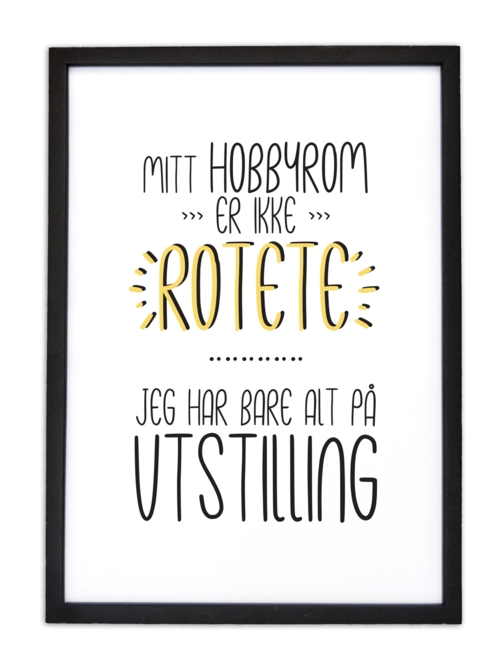 MITT HOBBYROM
››› ER IKKE ›››
ROTETE
JEG HAR BARE ALT PÅ
UTSTILLING